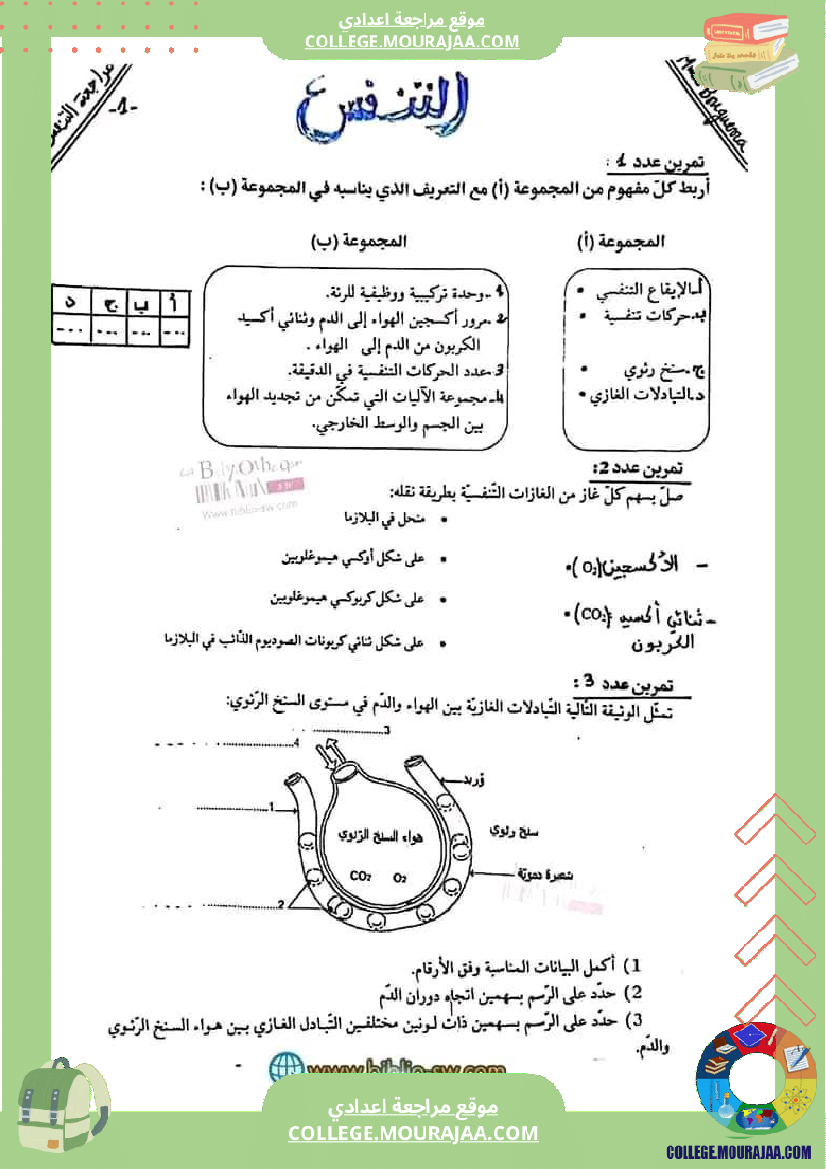 موقع مراجعة اعدادي
COLLEGE.MOURAJAA.COM
مراجعة
-1-
التنفس
تمرين عدد 1 :
أربط كلّ مفهوم من المجموعة (أ) مع التعريف الذي يناسبه في المجموعة (ب) :
المجموعة (أ)
المجموعة (ب)
أ-الإيقاع التنفسي •
ب-حركات تنفسية •
ج-سنخ رئوي •
د-التبادلات الغازي •
1-وحدة تركيبية ووظيفية للرئة.
2-مرور أكسجين الهواء إلى الدم وثنائي أكسيد
الكربون من الدم إلى الهواء .
3-عدد الحركات التنفسية في الدقيقة.
4-مجموعة الآليات التي تمكّن من تجديد الهواء
بين الجسم والوسط الخارجي.
أ ب ج د
... ... ... ...
www.biblio-sw.com
تمرين عدد 2:
صلّ بسهم كلّ غاز من الغازات التّنفسيّة بطريقة نقله:
• منحل في البلازما
• على شكل أوكسي هيموغلوبين
• على شكل كربوكسي هيموغلوبين
• على شكل ثنائي كربونات الصوديوم الذّائب في البلازما
- الأكسجين (O₂) •
- ثنائي أكسيد (CO₂) •
الكربون
تمرين عدد 3 :
تمثّل الوثيقة التّالية التّبادلات الغازيّة بين الهواء والدّم في مستوى السنخ الرّئوي:
3
4
وريد
1
هواء السنخ الرّئوي
سنخ رئوي
CO₂ O₂
شعيرة دموية
2
1) أكمل البيانات المناسبة وفق الأرقام.
2) حدّد على الرّسم بسهمين اتجاه دوران الدّم
3) حدّد على الرّسم بسهمين ذات لونين مختلفين التّبادل الغازي بين هواء السنخ الرّئوي
والدّم.
www.biblio-sw.com
موقع مراجعة اعدادي
COLLEGE.MOURAJAA.COM
COLLEGE.MOURAJAA.COM